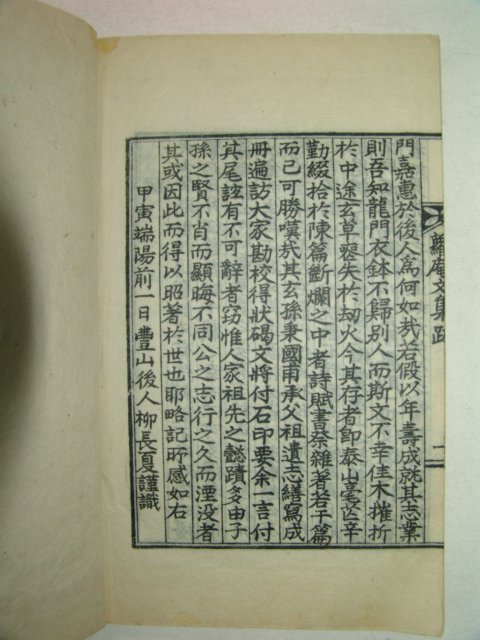 蘿庵文集跋
門嘉惠於後人爲何如哉若假以年壽成就其志業
則吾知龍門衣鉢不歸別人而斯文不幸佳木摧折
於中途玄草䘮失於劫火今其存者卽泰山毫芒辛
勤綴拾於陳篇斷爛之中者詩賦書祭雜著若干篇
而已可勝嘆哉其玄孫秉國甫承父祖遺志繕寫成
冊遍訪大家勘校得狀碣文將付石印要余一言付
其尾誼有不可辭者窃惟人家祖先之懿蹟多由子
孫之賢不肖而顯晦不同公之志行之久而湮没者
其或因此而得以昭著於世也耶略記所感如右
甲寅端陽前一日豊山後人柳長夏謹識